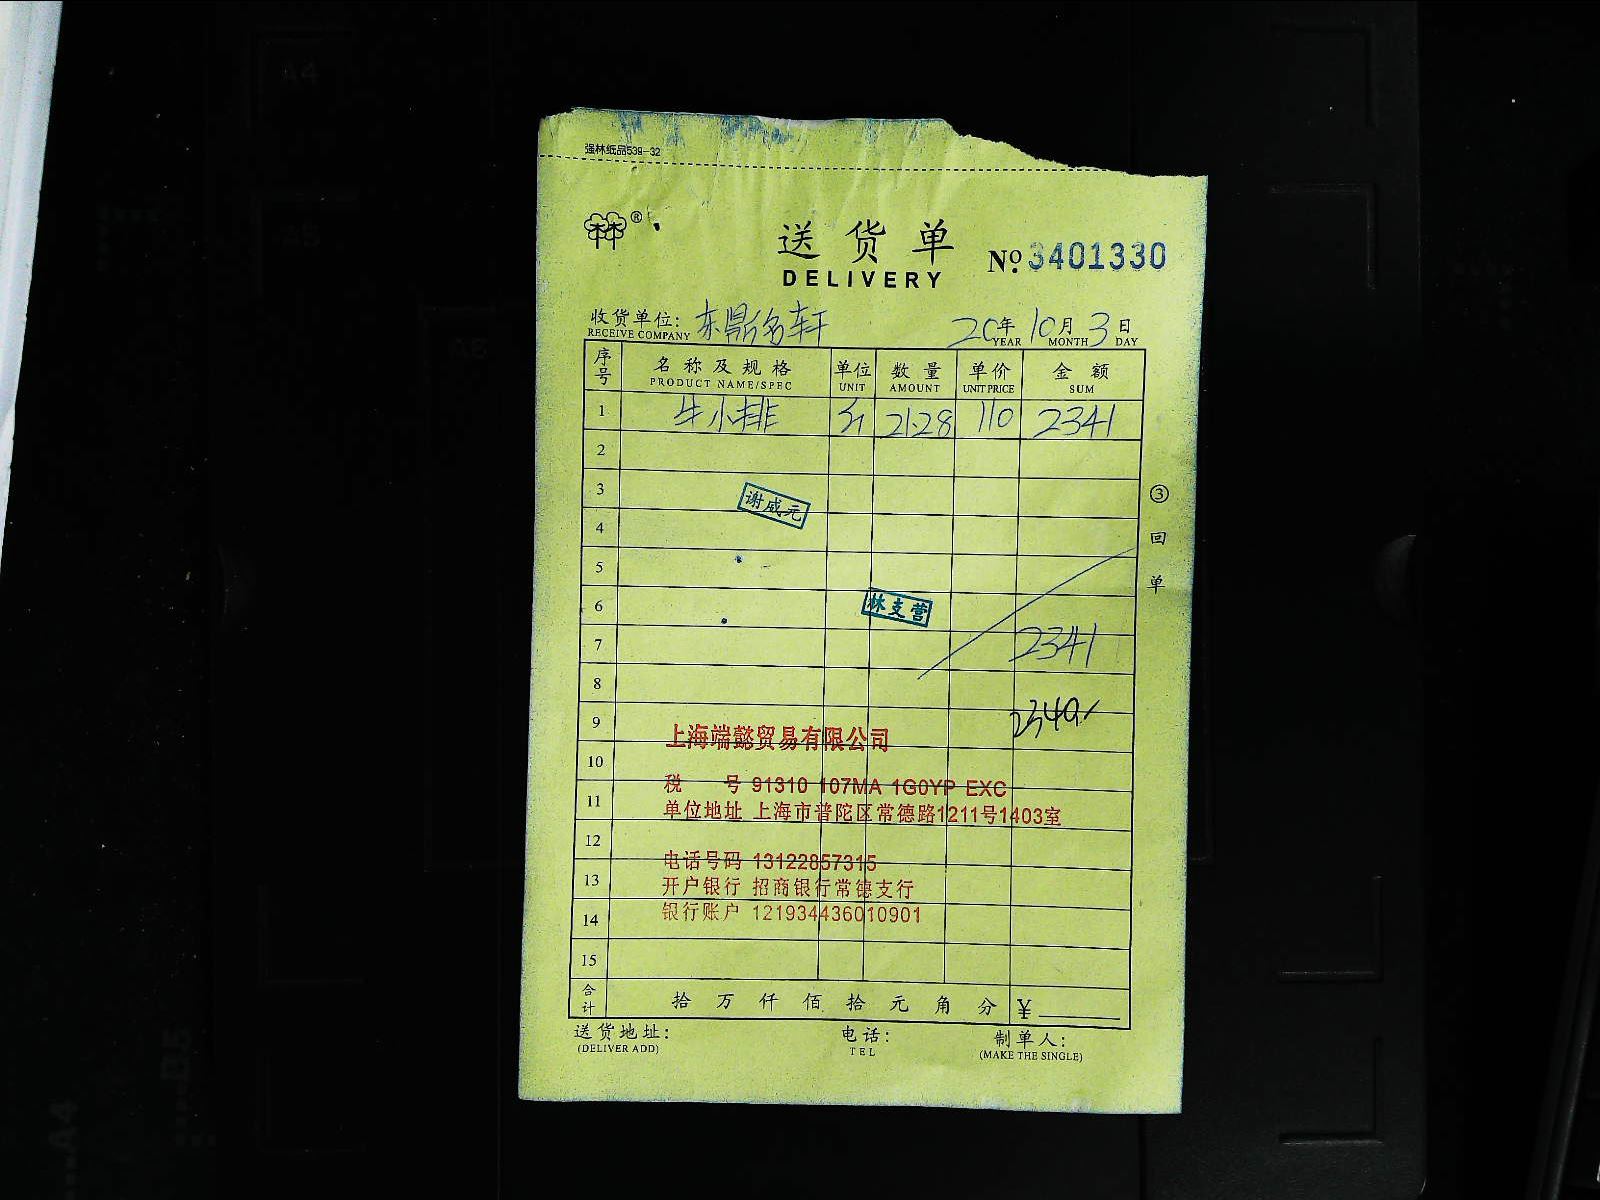 强林纸品539-32
林®
送货单
DELIVERY
№ 3401330
收货单位: 东鼎名轩 20年10月3日
RECEIVE COMPANY YEAR MONTH DAY
序号 名称及规格 单位 数量 单价 金额
PRODUCT NAME/SPEC UNIT AMOUNT UNIT PRICE SUM
1 牛小排 斤 21.28 110 2341
2
3
谢威元
4
5
6
林支营
7 2341
8
9 2340/
上海端懿贸易有限公司
10
税 号 91310 107MA 1G0YP EXC
11
单位地址 上海市普陀区常德路1211号1403室
12
电话号码 13122857315
13
开户银行 招商银行常德支行
14
银行账户 121934436010901
15
合计 拾 万 仟 佰 拾 元 角 分 ¥
送货地址: 电话: 制单人:
(DELIVER ADD) TEL (MAKE THE SINGLE)
③回单
A4
A5
A3
B5
A4